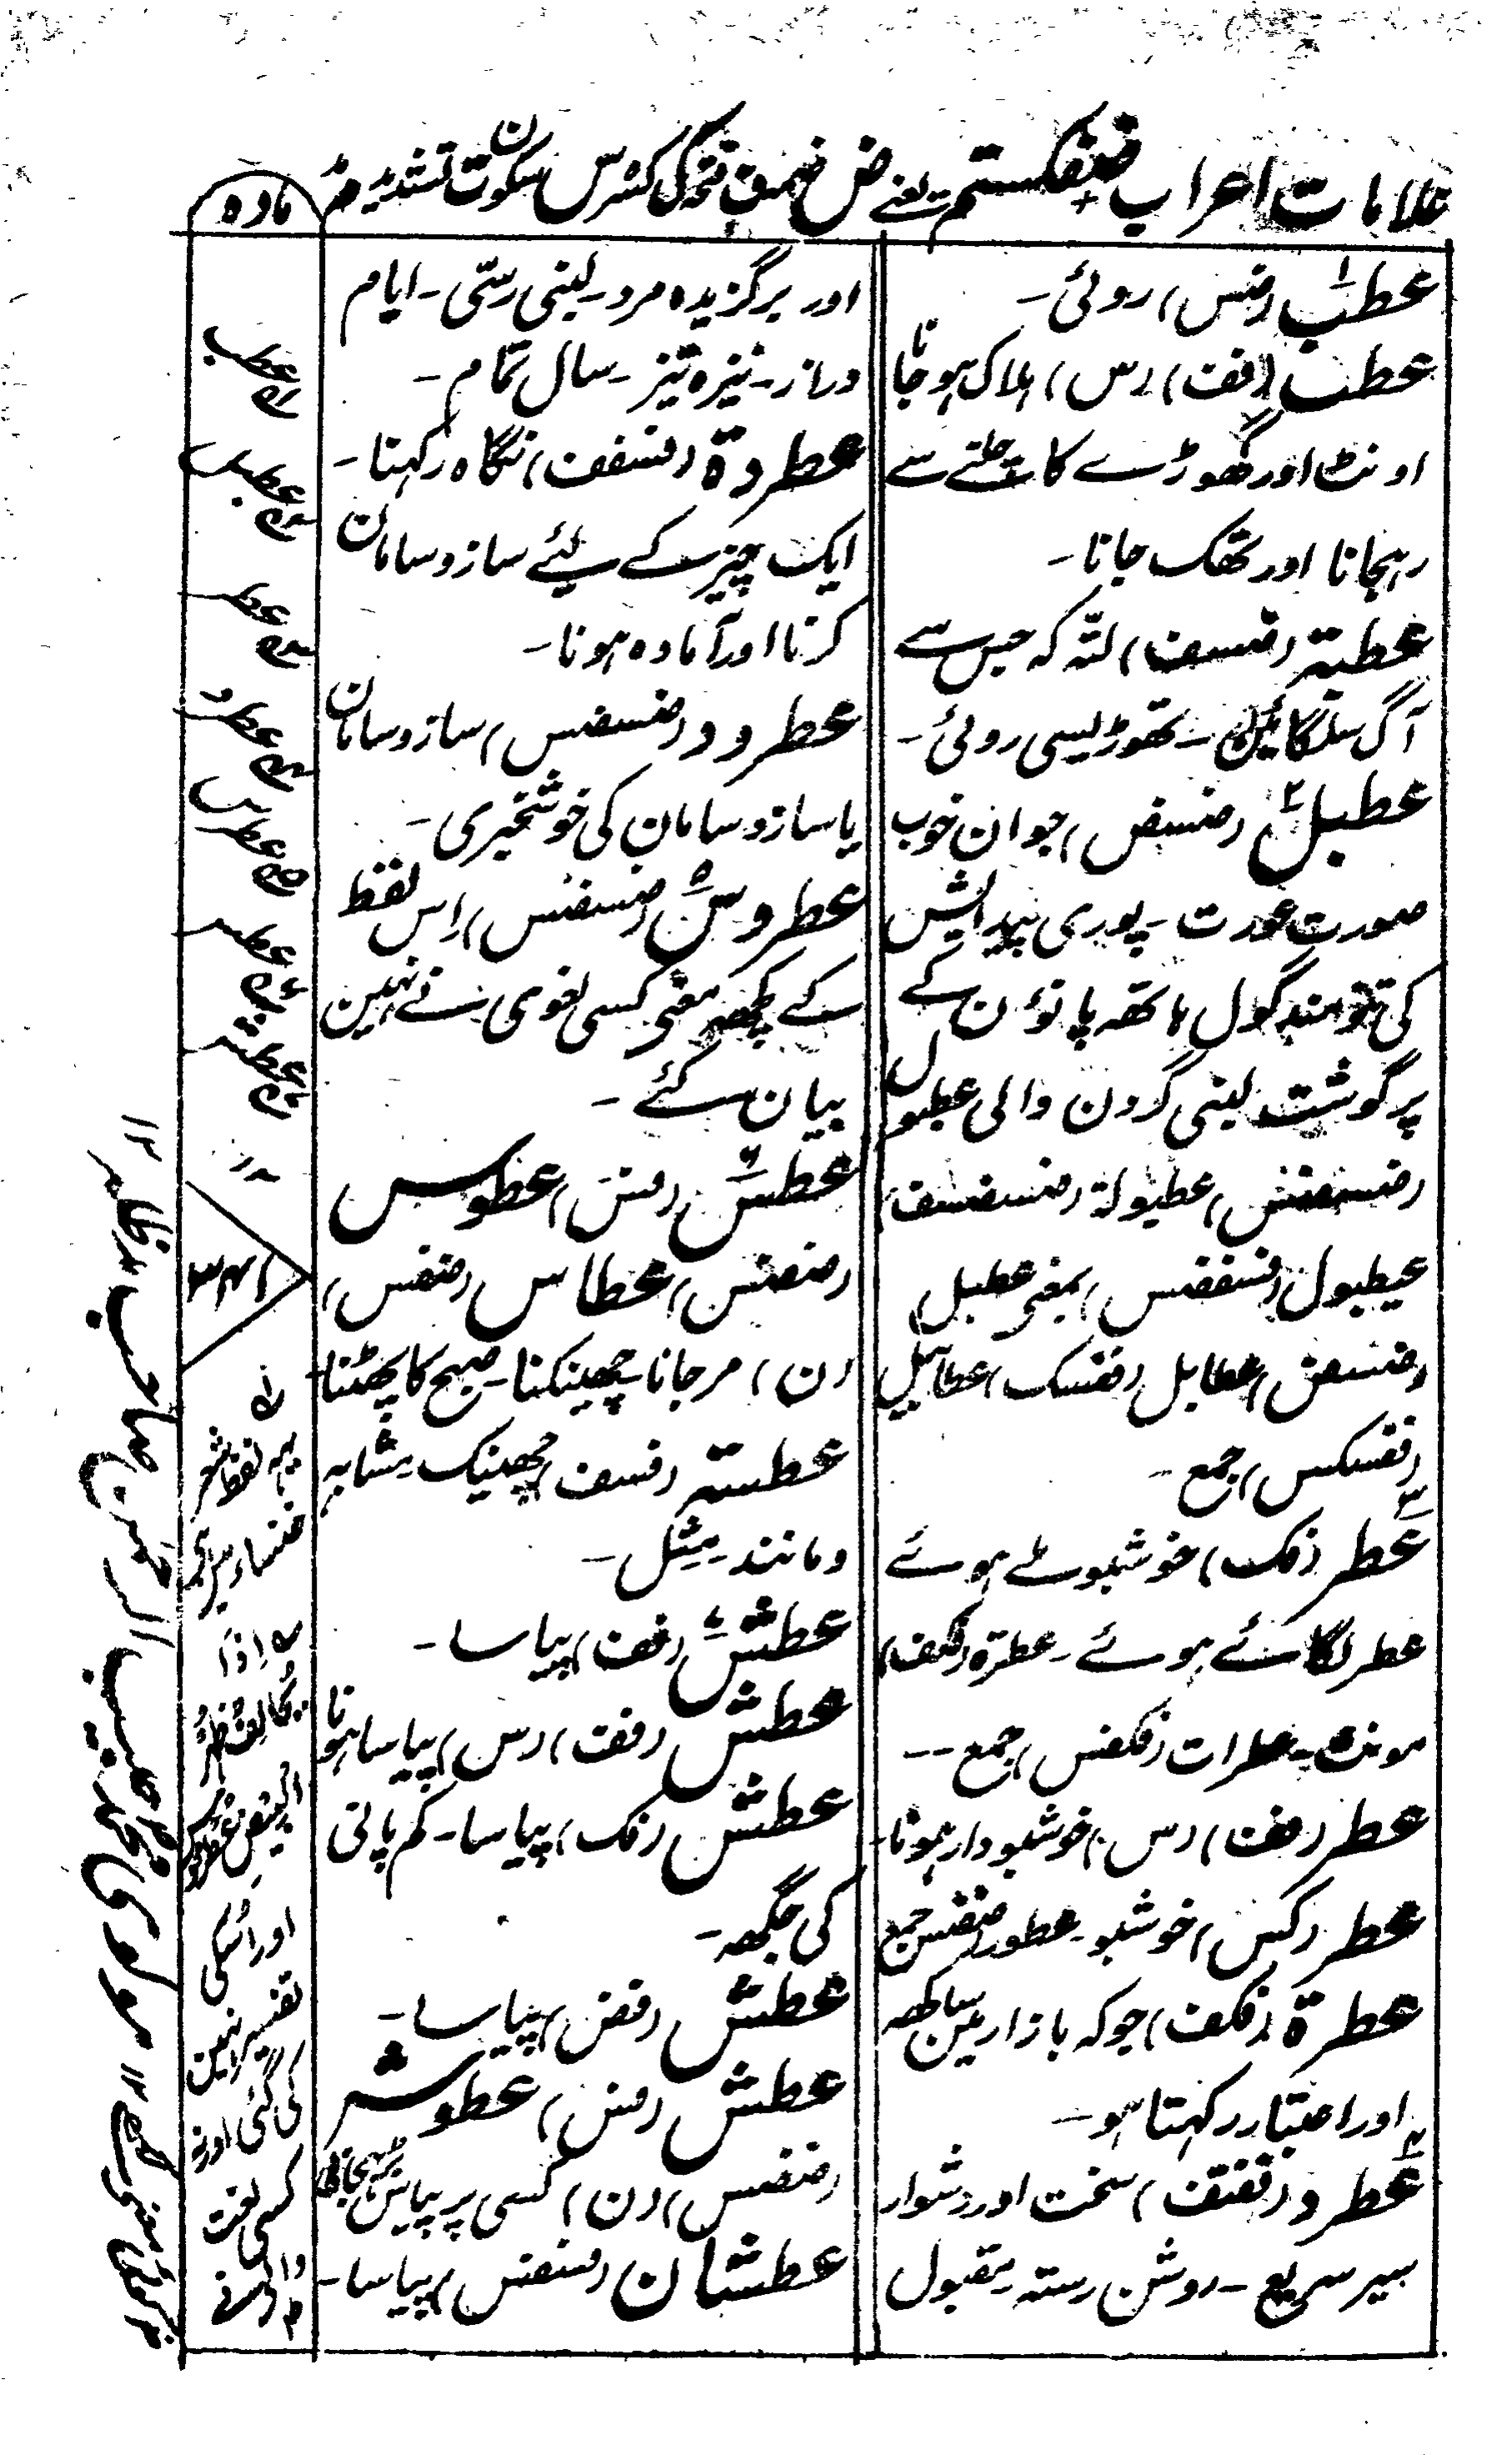 علامات اعراب ضفکستم یعنے ض ضمہ ف فتحہ ک کسرہ س سکون ت تشدید م مد
مادہ
عطب (ضس) روئی۔
عطب (فف) (س) ہلاک ہو جانا
اونٹ اور گھوڑے کا چلنے سے
رہجانا اور تھک جانا۔
عطبۃ (ضسف) لتہ کہ جس سے
آگ سلگائیں۔ تھوڑیسی روئی۔
عطبل (ضسض) جوان خوب
صورت عورت۔ پوری پیدایش
کی تنومند گول ہاتھہ پانوُن کے
پر گوشت لنبی گردن والی عطبول
(ضسضس) عطبولۃ (ضسضسف)
عیطبول (فسففس) بمعنی عطبل
(ضسض) عطابل (ففسک) عطابیل
(ففسکس) جمع۔
عطر (فک) خوشبو ملے ہوئے
عطر لگائے ہوئے۔ عطرۃ (فکف)
مونث۔ عطرات (فکفس) جمع۔۔
عطر (فف) (س) خوشبودار ہونا۔
عطر (کس) خوشبو۔ عطور (ضضس) جمع
عطرۃ (فکف) جو کہ بازار میں ساکھہ
اور اعتبار رکہتا ہو۔
عطرد (ففتف) سخت اور دشوار
سیر سریع۔ روشن رستہ۔ مقبول
اور برگزیدہ مرد۔ لنبی رسّی۔ ایام
دراز۔ نیزہ تیز۔ سال تمام۔
عطردۃ (فسفف) نگاہ رکہنا۔
ایک چیز کے لیئے سازوسامان
کرنا اور آمادہ ہونا۔
عطرود (ضسضس) سازوسامان
یا سازوسامان کی خوشخبری۔
عطروس (ضسضس) اِس لفظ
کے کچھہ معنی کسی لغوی نے نہین
بیان کئے۔
عطس (فس) عطوس
(ضضس) عطاس (ضفس)
(ن) مرجانا۔ چھینکنا۔ صبح کا پھٹنا۔
عطسۃ (فسف) چھینک۔ مشابہ
ومانند۔ مِثل۔
عطش (فف) پیاسا۔
عطش (فف) (س) پیاسا ہونا
عطش (فک) پیاسا۔ کم پانی
کی جگہہ۔
عطش (فض) پیاسا۔
عطش (فس) عطوش
(ضضس) (ن) کسی پر پیاس میں
عطشان (فسفس) پیاسا۔
عطب
عطبل
عطر
عطرد
عطرس
عطس
عطش
یہہ لفظ شعر
خنساء میں
اذا
یخالف ظہر
البیض عطروس
اور اُسکی
تفسیر نہین
کی گئی اور نہ
کسی لغت
والے نے